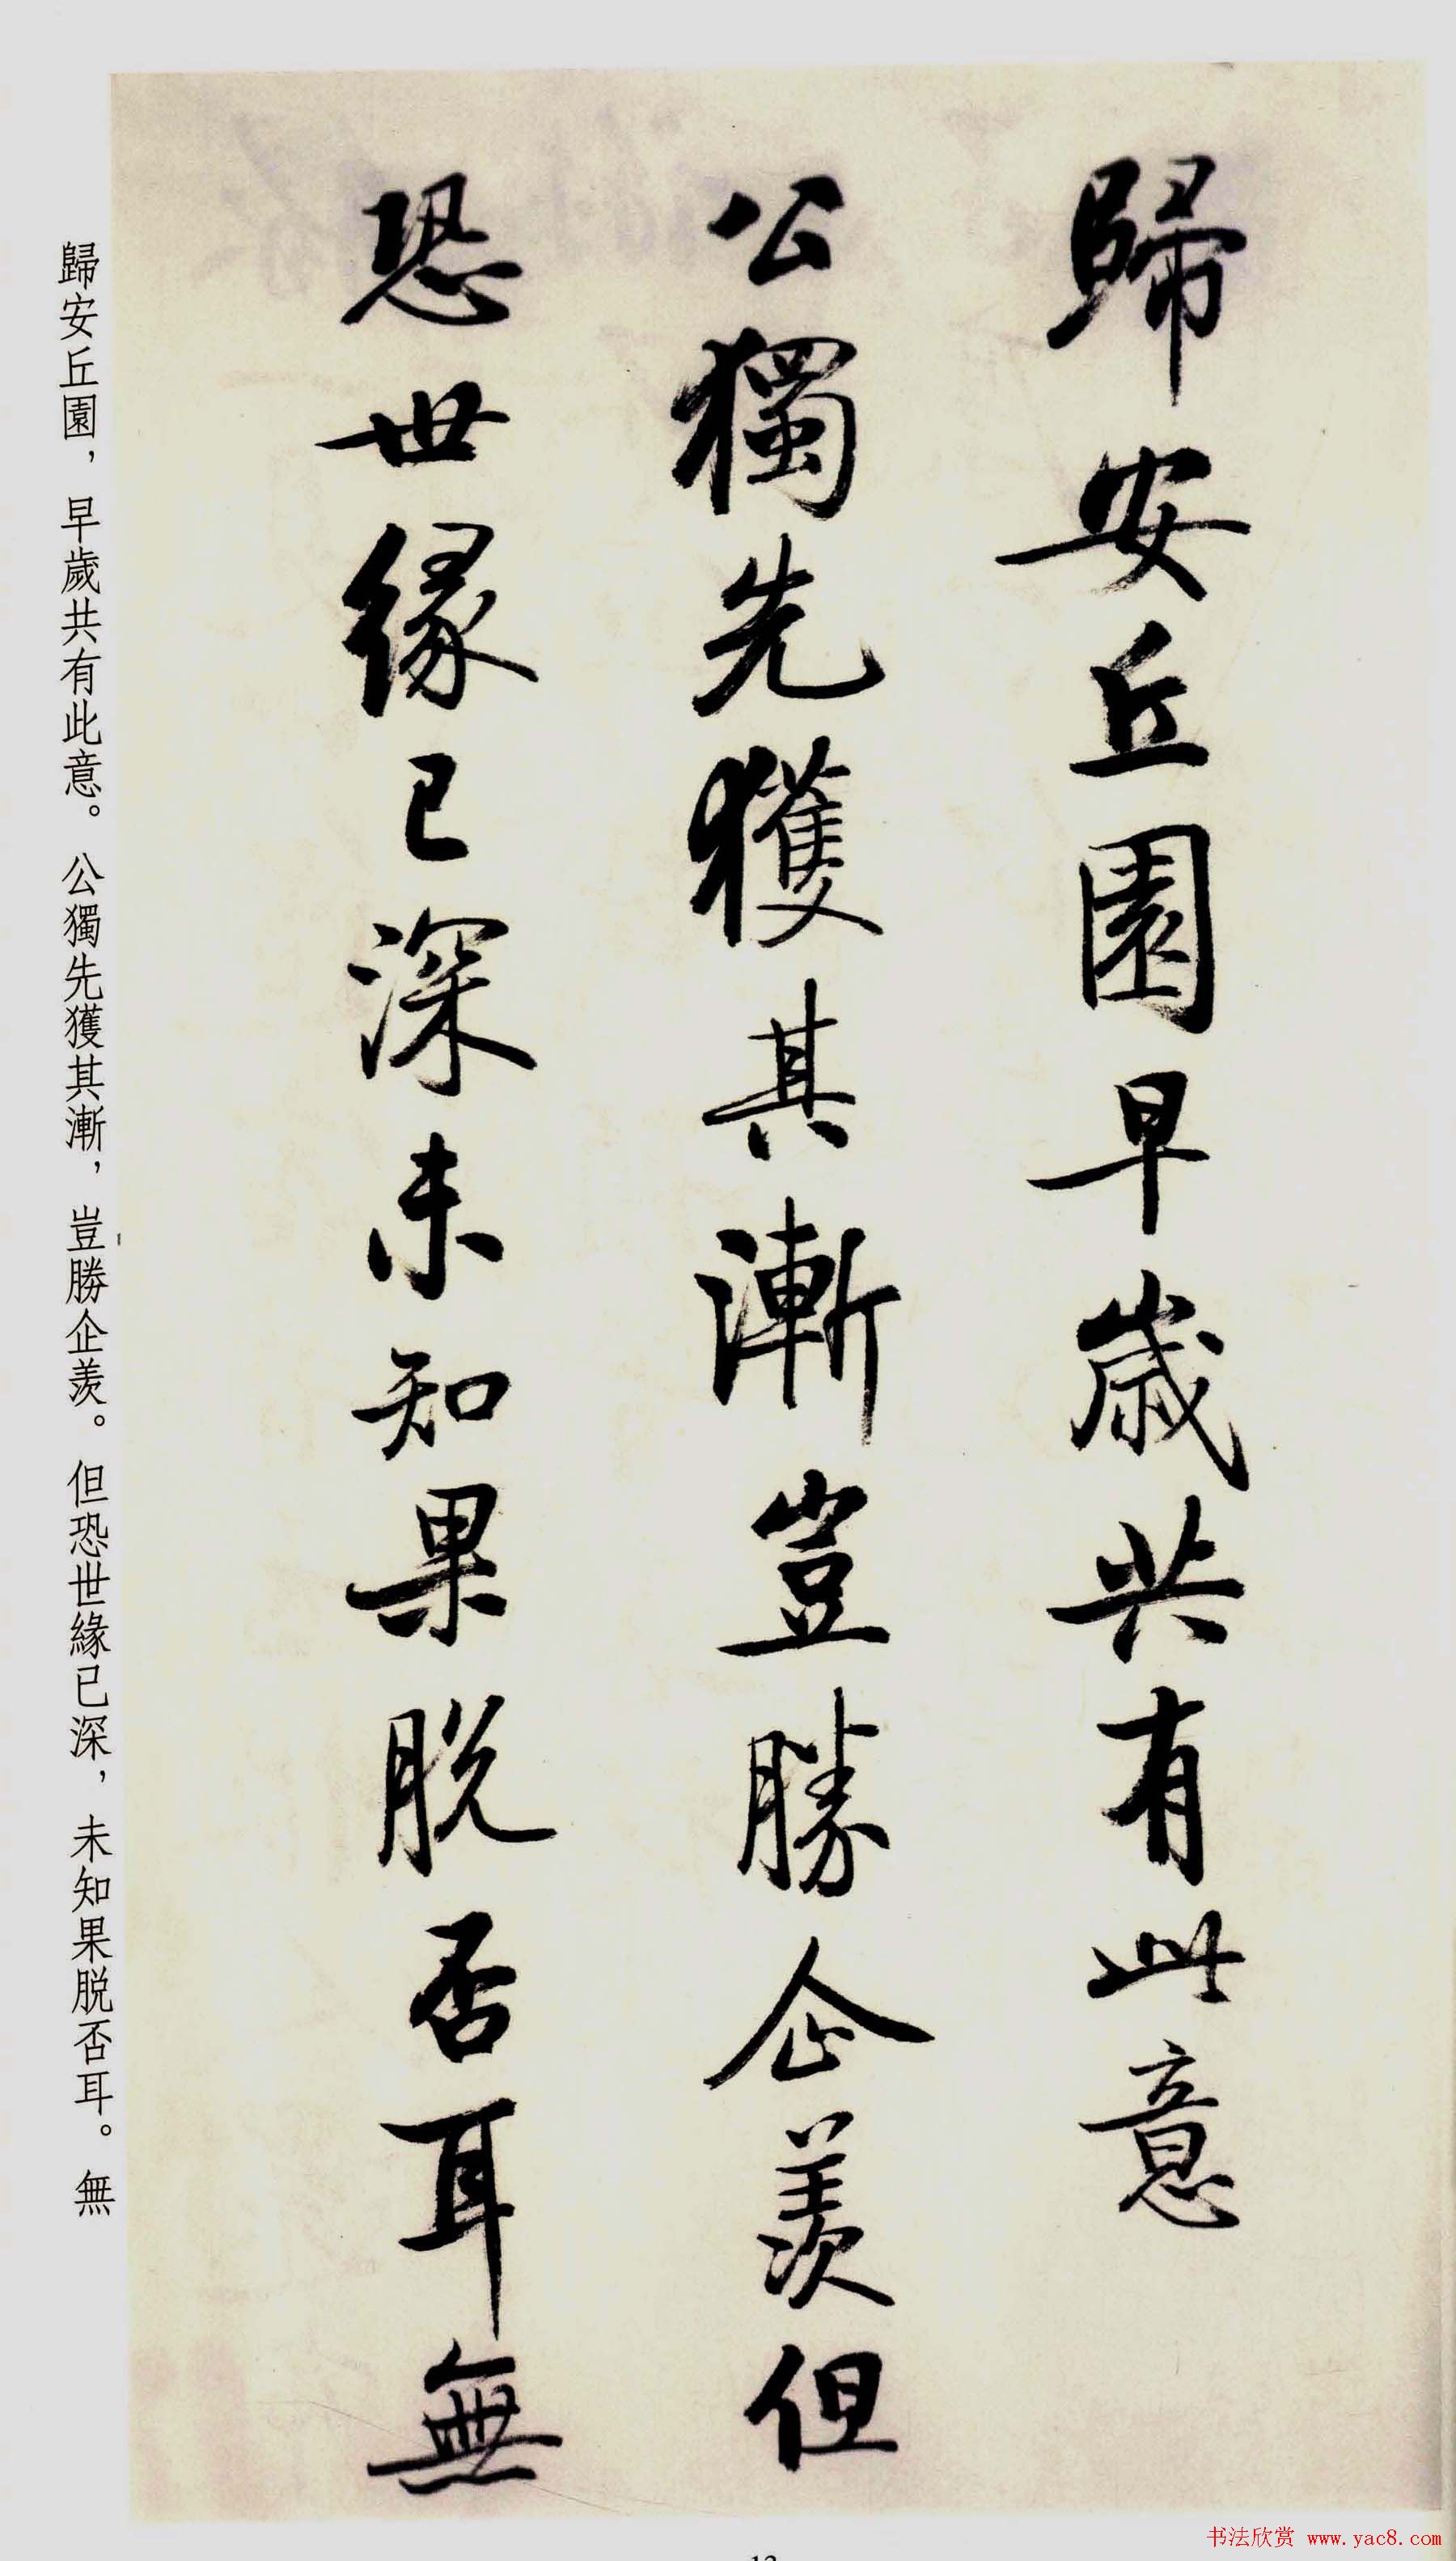 歸安丘園早歲共有此意
公獨先獲其漸豈勝企羨但
恐世緣已深未知果脫否耳無
歸安丘園，早歲共有此意。公獨先獲其漸，豈勝企羨。但恐世緣已深，未知果脱否耳。無
书法欣赏 www.yac8.com